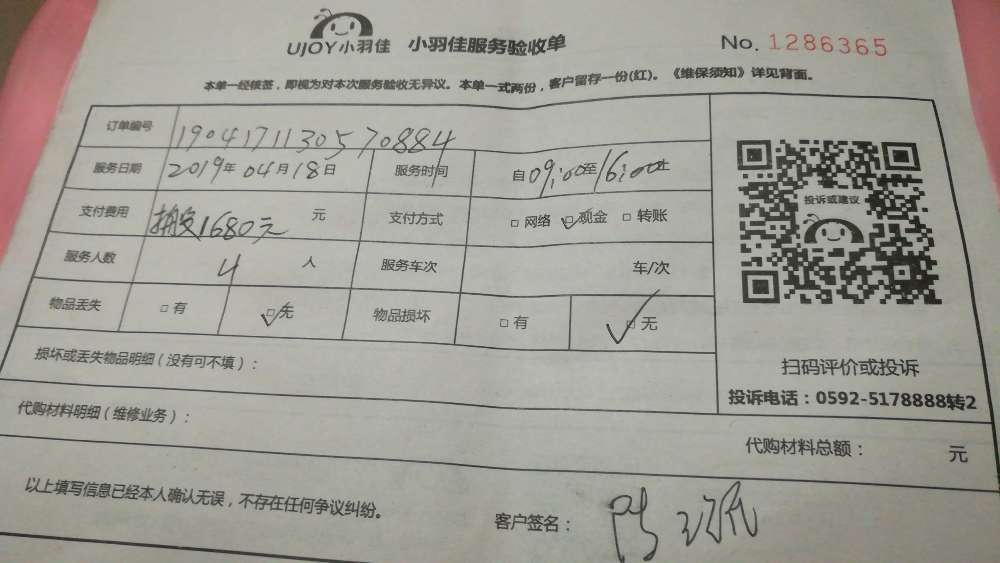 UJOY小羽佳 小羽佳服务验收单 No. 1286365
本单一经核签，即视为对本次服务验收无异议。本单一式两份，客户留存一份(红)。《维保须知》详见背面。
订单编号 190417113057​0884
服务日期 2019年 04月 18日 服务时间 自09:00至16:00止
支付费用 1680元 元 支付方式 □ 网络 ☑ 现金 □ 转账
服务人数 4 人 服务车次 车/次
物品丢失 □ 有 ☑ 无 物品损坏 □ 有 ☑ 无
损坏或丢失物品明细（没有可不填）：
代购材料明细（维修业务）：
投诉或建议
扫码评价或投诉
投诉电话：0592-5178888转2
代购材料总额： 元
以上填写信息已经本人确认无误，不存在任何争议纠纷。
客户签名：